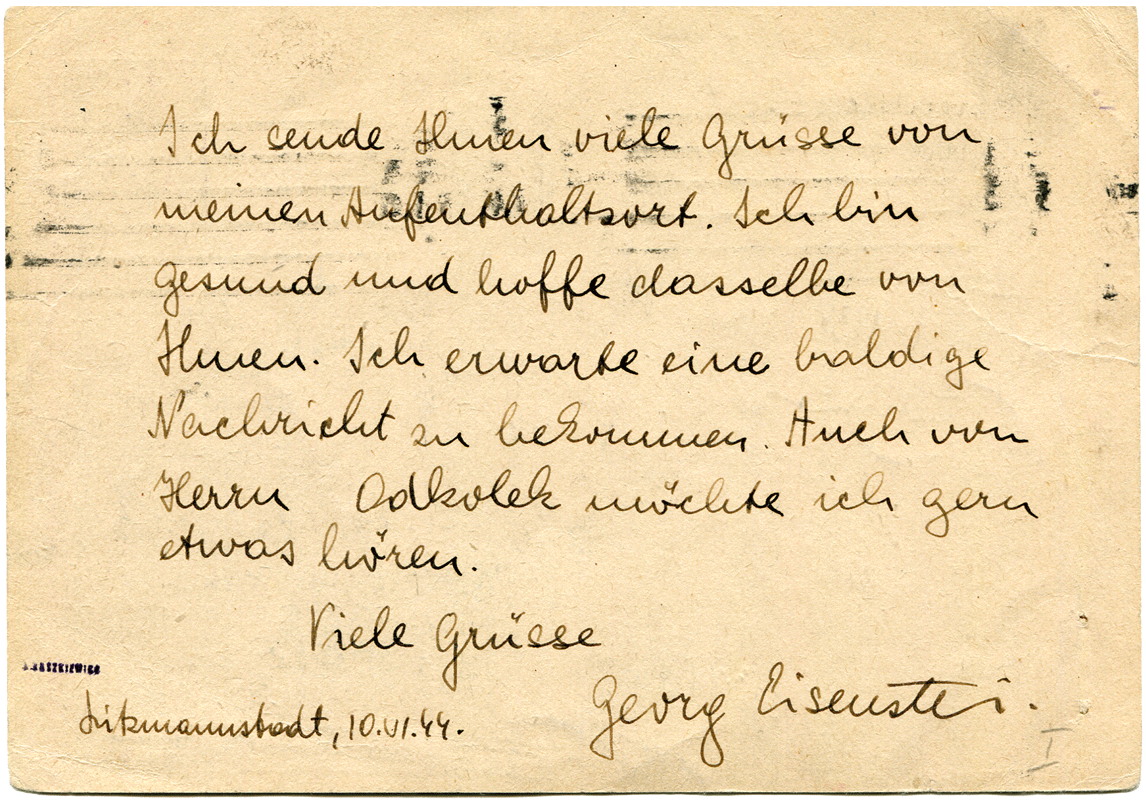 Ich sende Ihnen viele Grüsse von
meinen Aufenthaltsort. Ich bin
gesund und hoffe dasselbe von
Ihnen. Ich erwarte eine baldige
Nachricht zu bekommen. Auch von
Herrn Odkolek möchte ich gern
etwas hören.
Viele Grüsse
Georg Eisenstei.
Litzmannstadt, 10.VI.44.
I